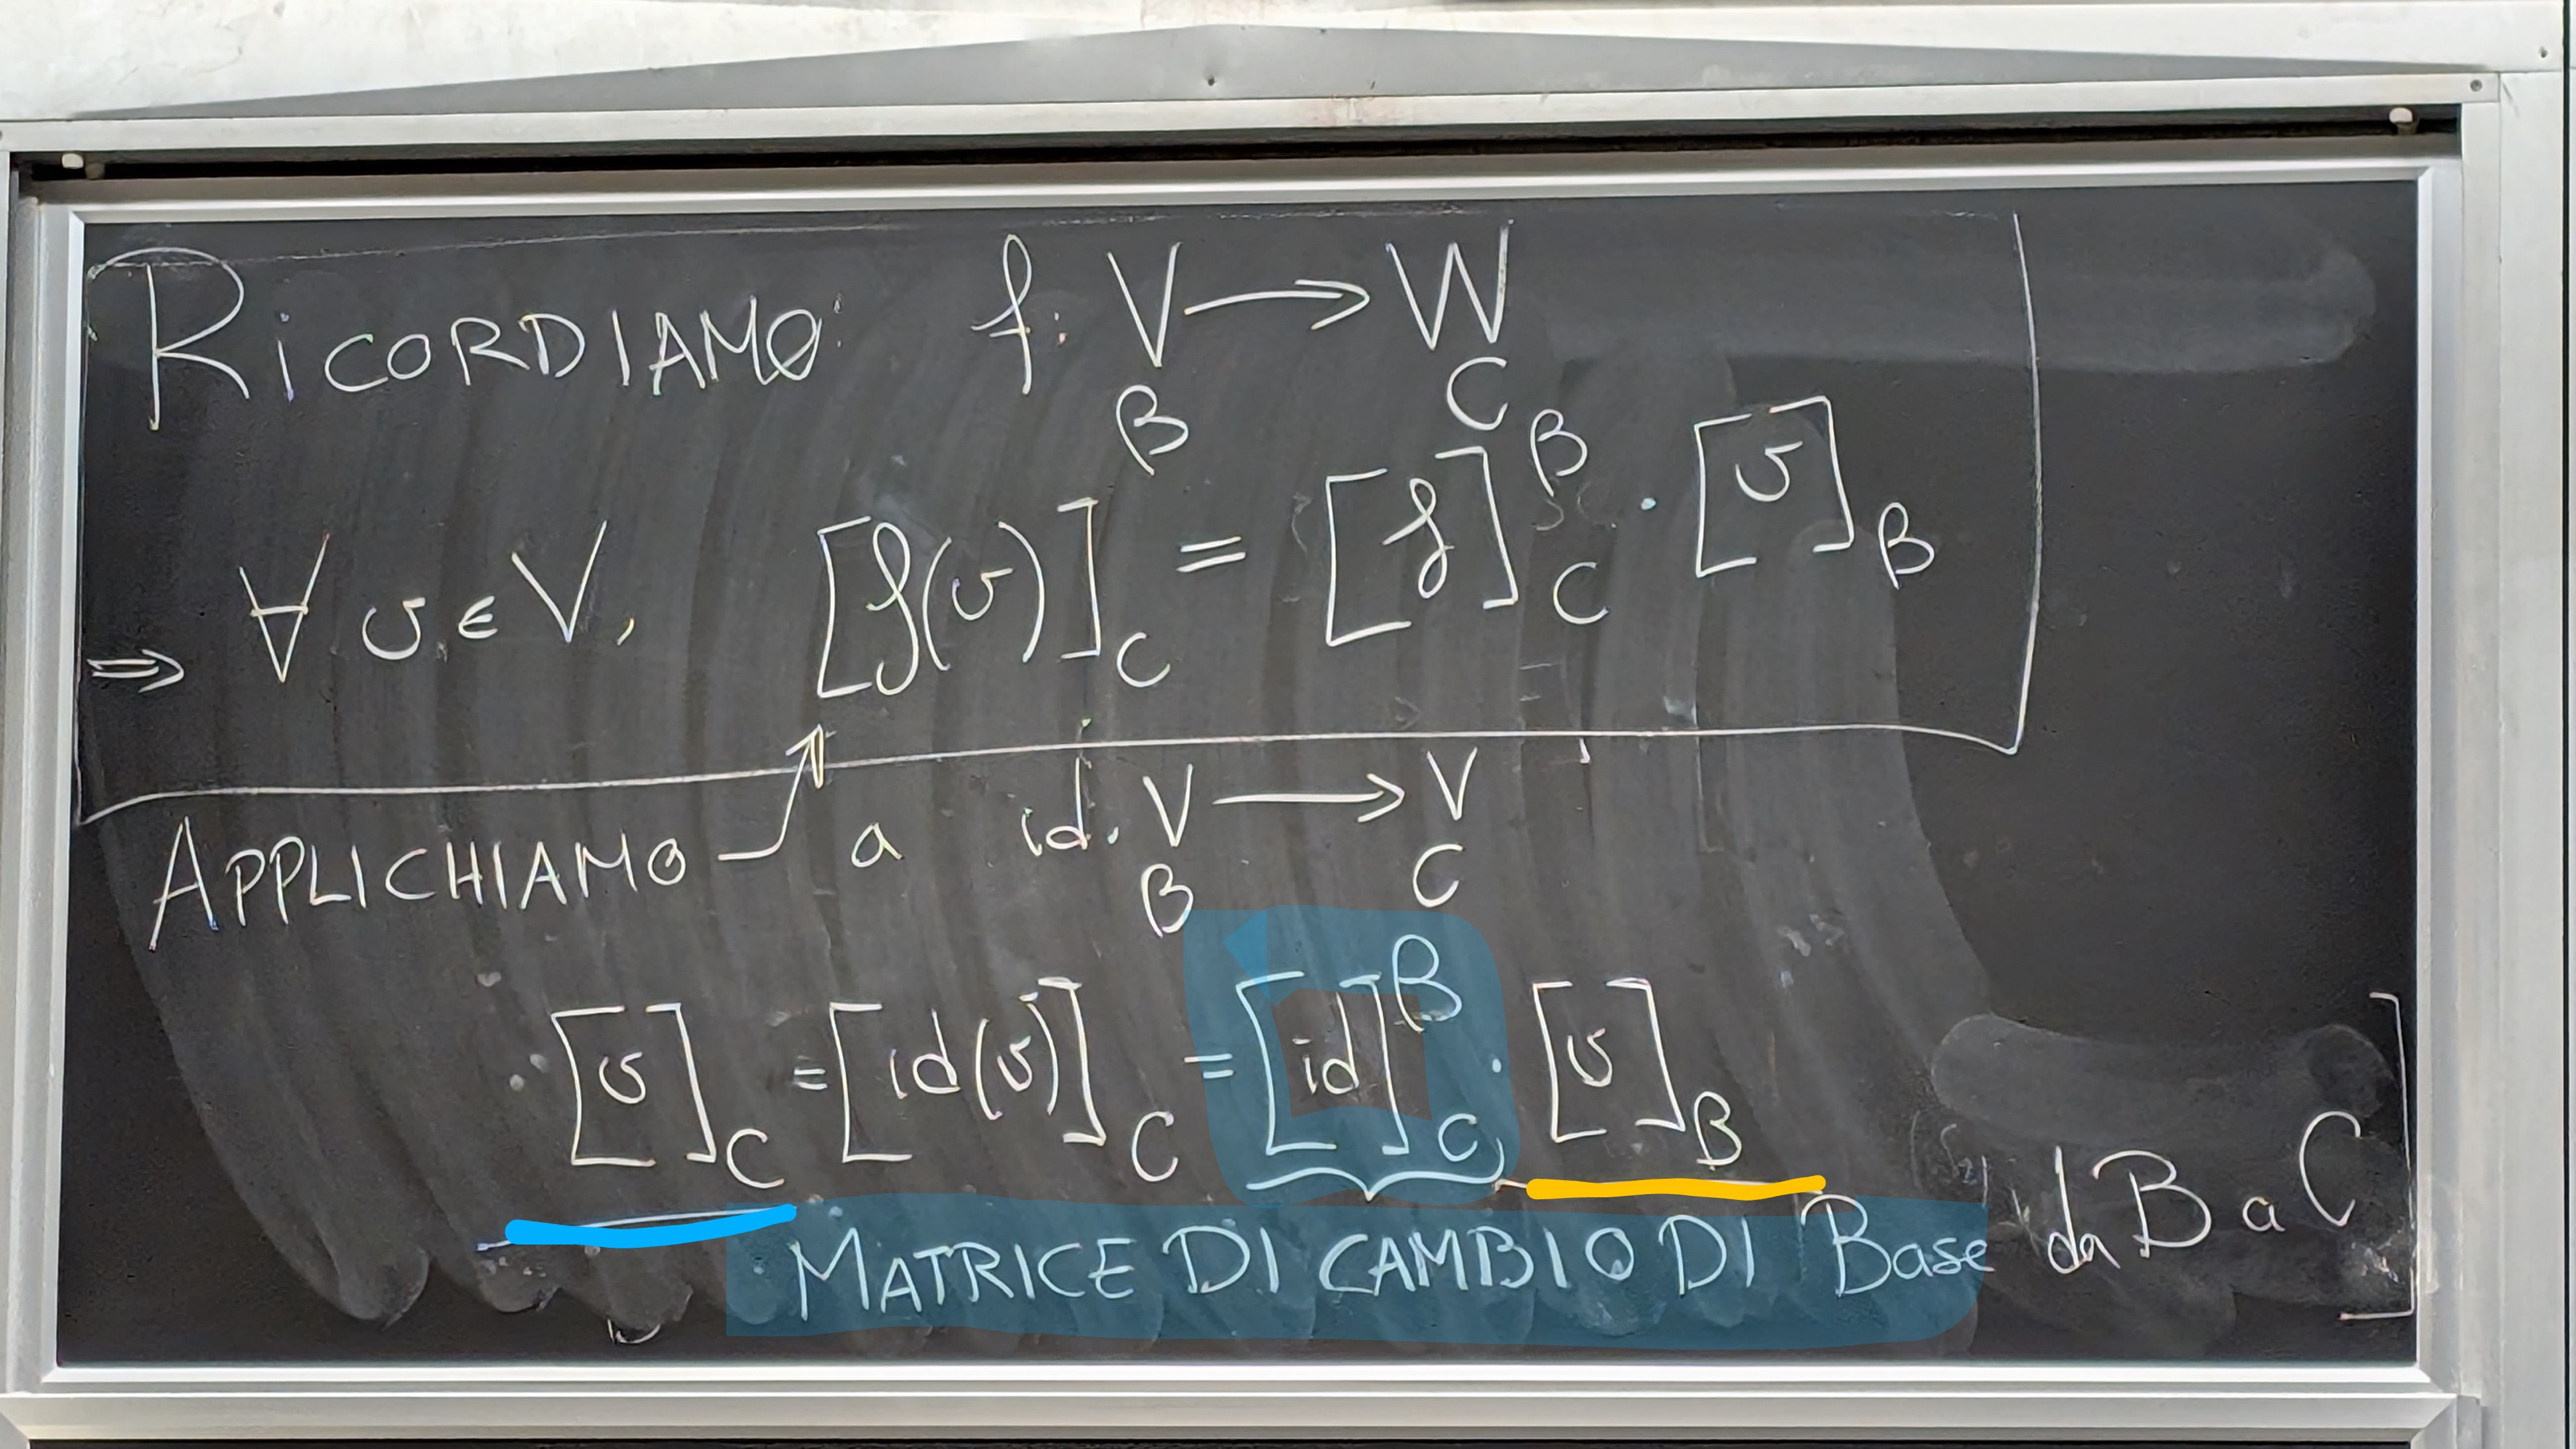 RICORDIAMO: f: V → W
B C
⇒ ∀ v ∈ V, [f(v)]_C = [f]^B_C · [v]_B
APPLICHIAMO a id: V → V
B C
[v]_C = [id(v)]_C = [id]^B_C · [v]_B
MATRICE DI CAMBIO DI Base da B a C]